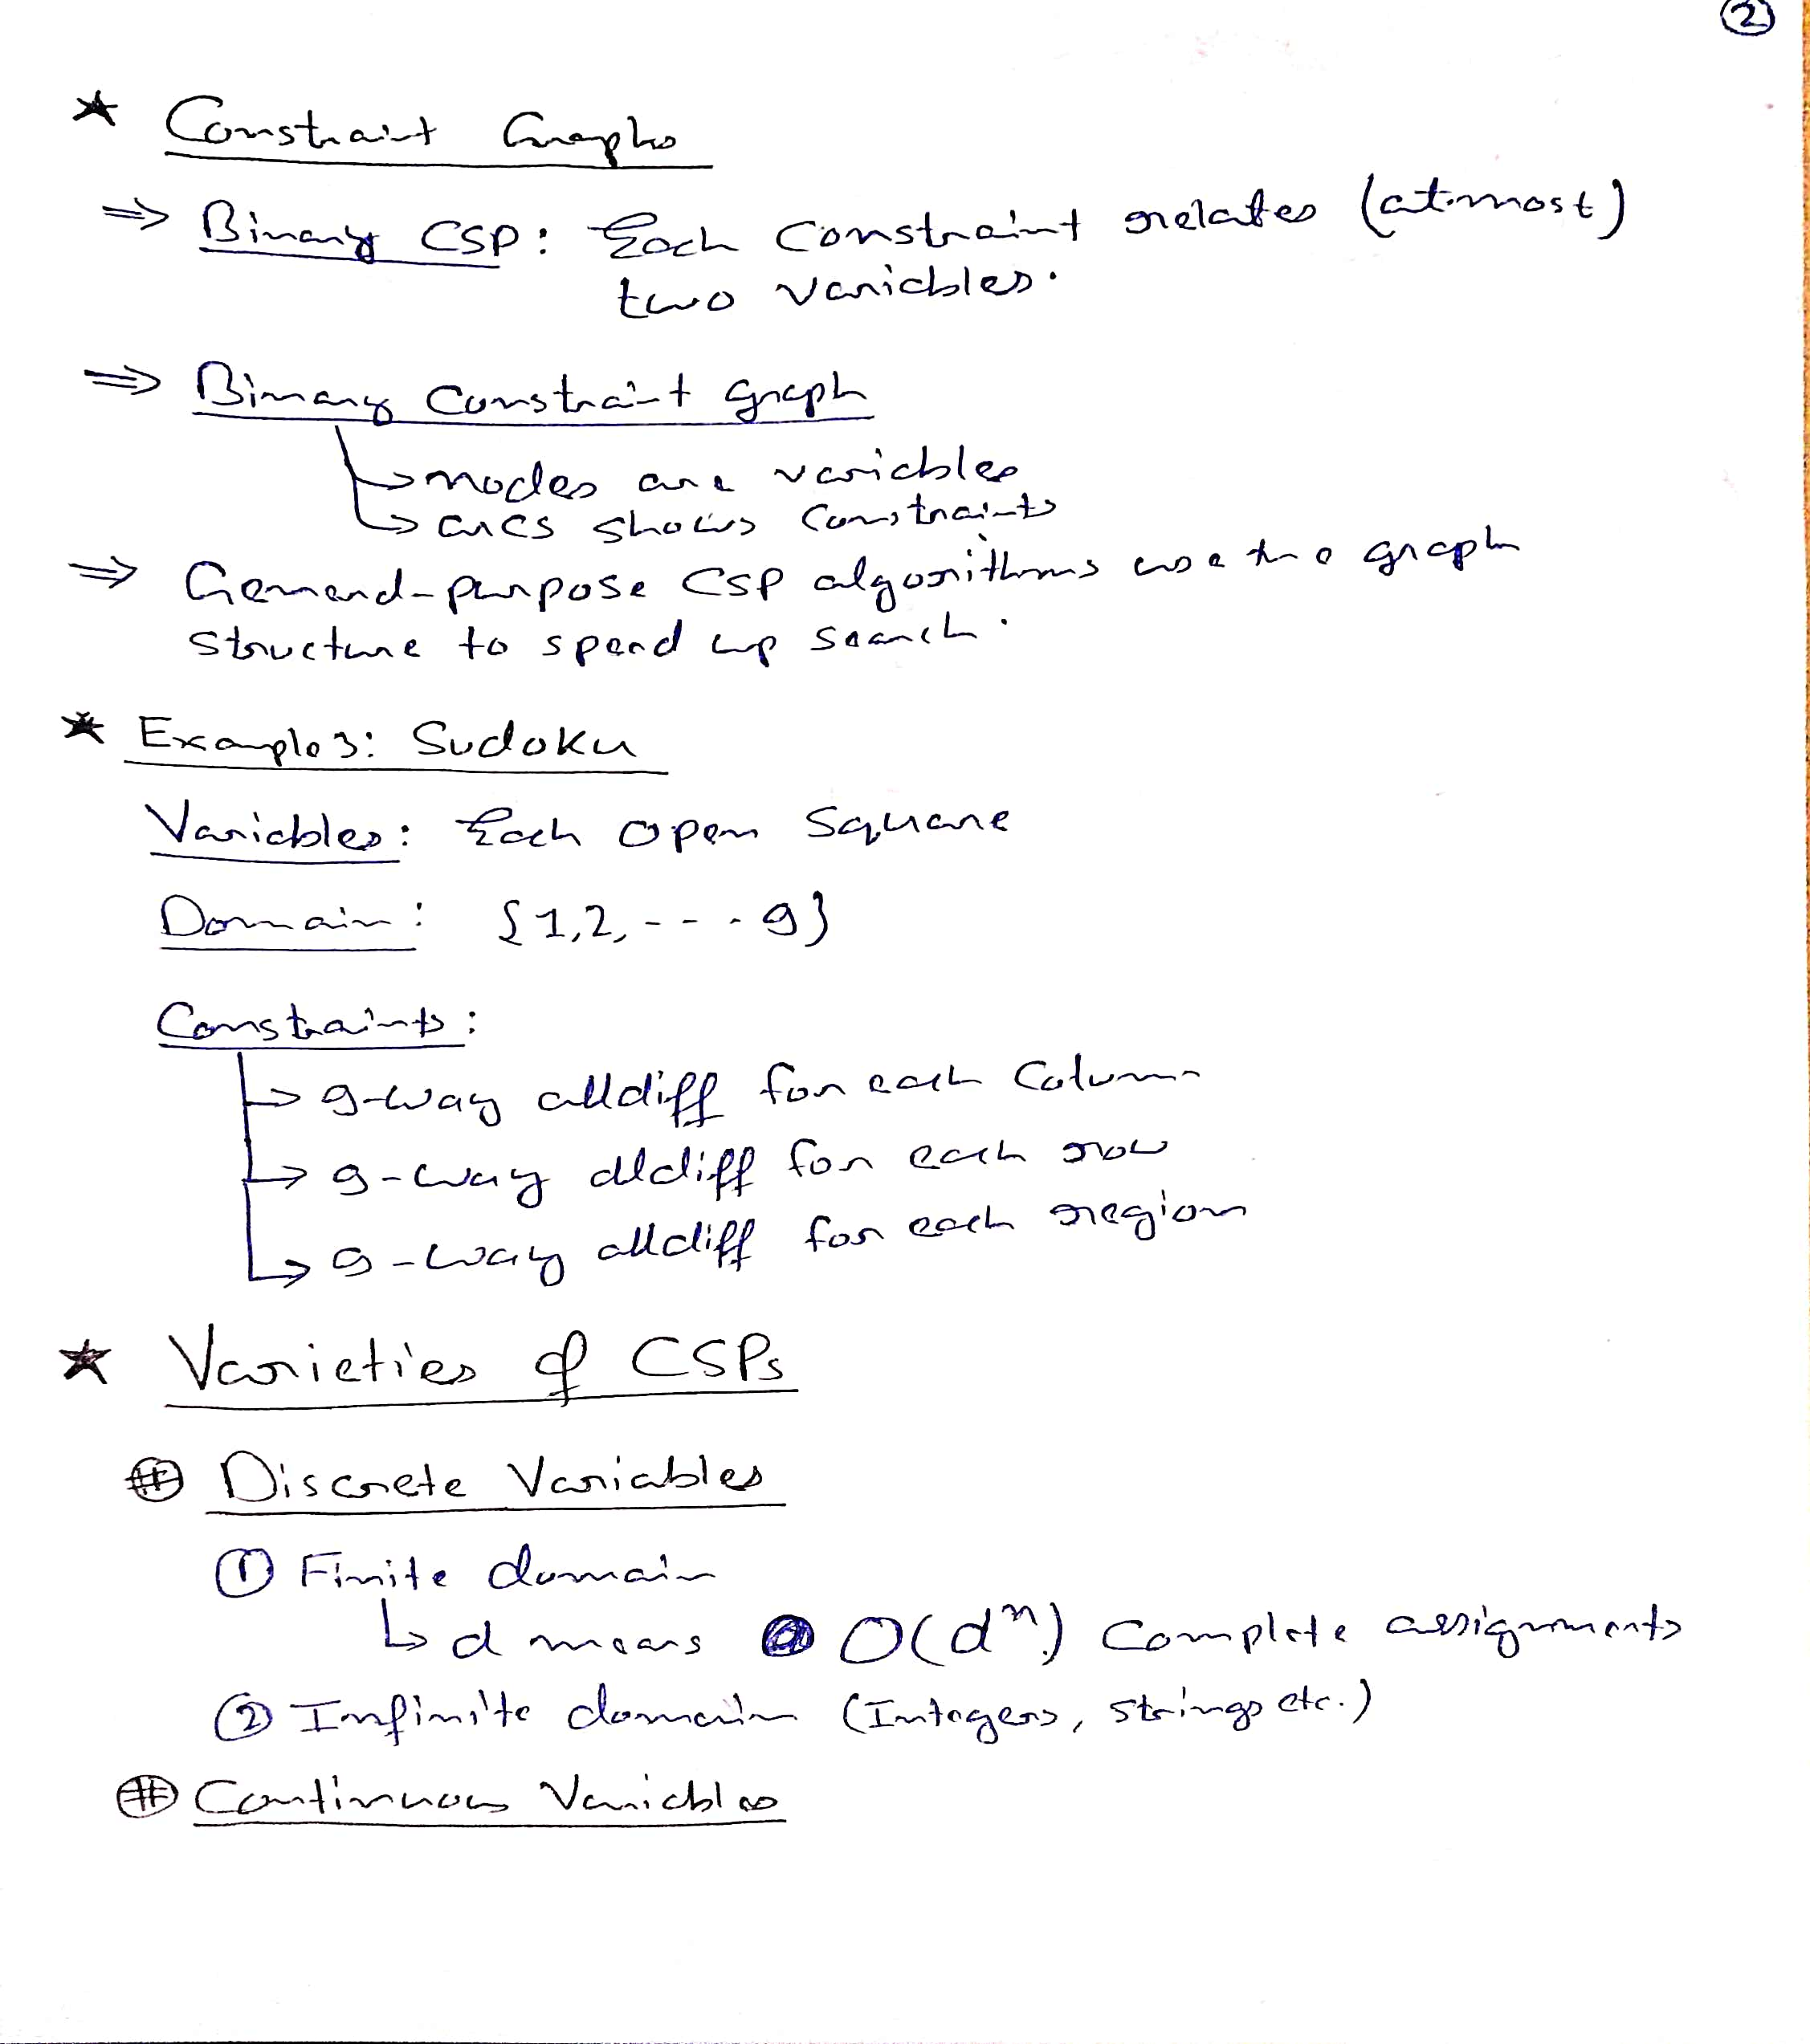 ②
★ Constraint Graphs
⇒ Binary CSP: Each Constraint relates (atmost)
two variables.
⇒ Binary Constraint graph
↳ nodes are variables
↳ arcs shows Constraints
⇒ General-purpose CSP algorithms use the graph
structure to speed up search.
★ Example 3: Sudoku
Variables: Each open Square
Domain: {1,2,---9}
Constraints:
↳ 9-way alldiff for each Column
↳ 9-way alldiff for each row
↳ 9-way alldiff for each region
★ Varieties of CSPs
⊕ Discrete Variables
① Finite domain
↳ d means O(dⁿ) Complete assignments
② Infinite domain (Integers, strings etc.)
⊕ Continuous Variables